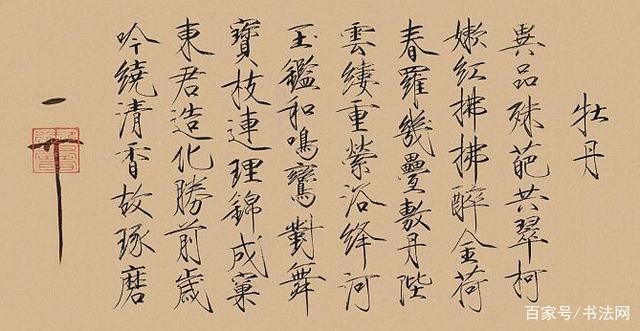 牡丹
異品殊葩共翠柯
嫩紅拂拂醉金荷
春羅幾疊敷丹陛
雲縷重縈浴絳河
玉鑑和鳴鸞對舞
寶枝連理錦成窠
東君造化勝前歲
吟繞清香故琢磨
百家号/书法网